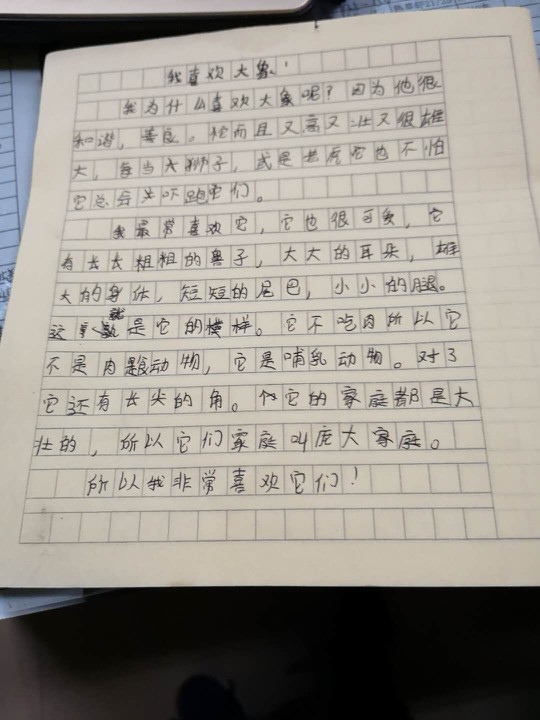 我喜欢大象!
我为什么喜欢大象呢?因为他很
和谐,善良。他而且又高又壮又很雄
大,每当大狮子,或是老虎它也不怕
它总会吓跑它们。
我最常喜欢它,它也很可爱,它
有长长粗粗的鼻子,大大的耳朵,雄
大的身体,短短的尾巴,小小的腿。
这就是它的模样。它不吃肉所以它
不是肉食动物,它是哺乳动物。对了
它还有长尖的角。它的家庭都是大
壮的,所以它们家庭叫庞大家庭。
所以我非常喜欢它们!